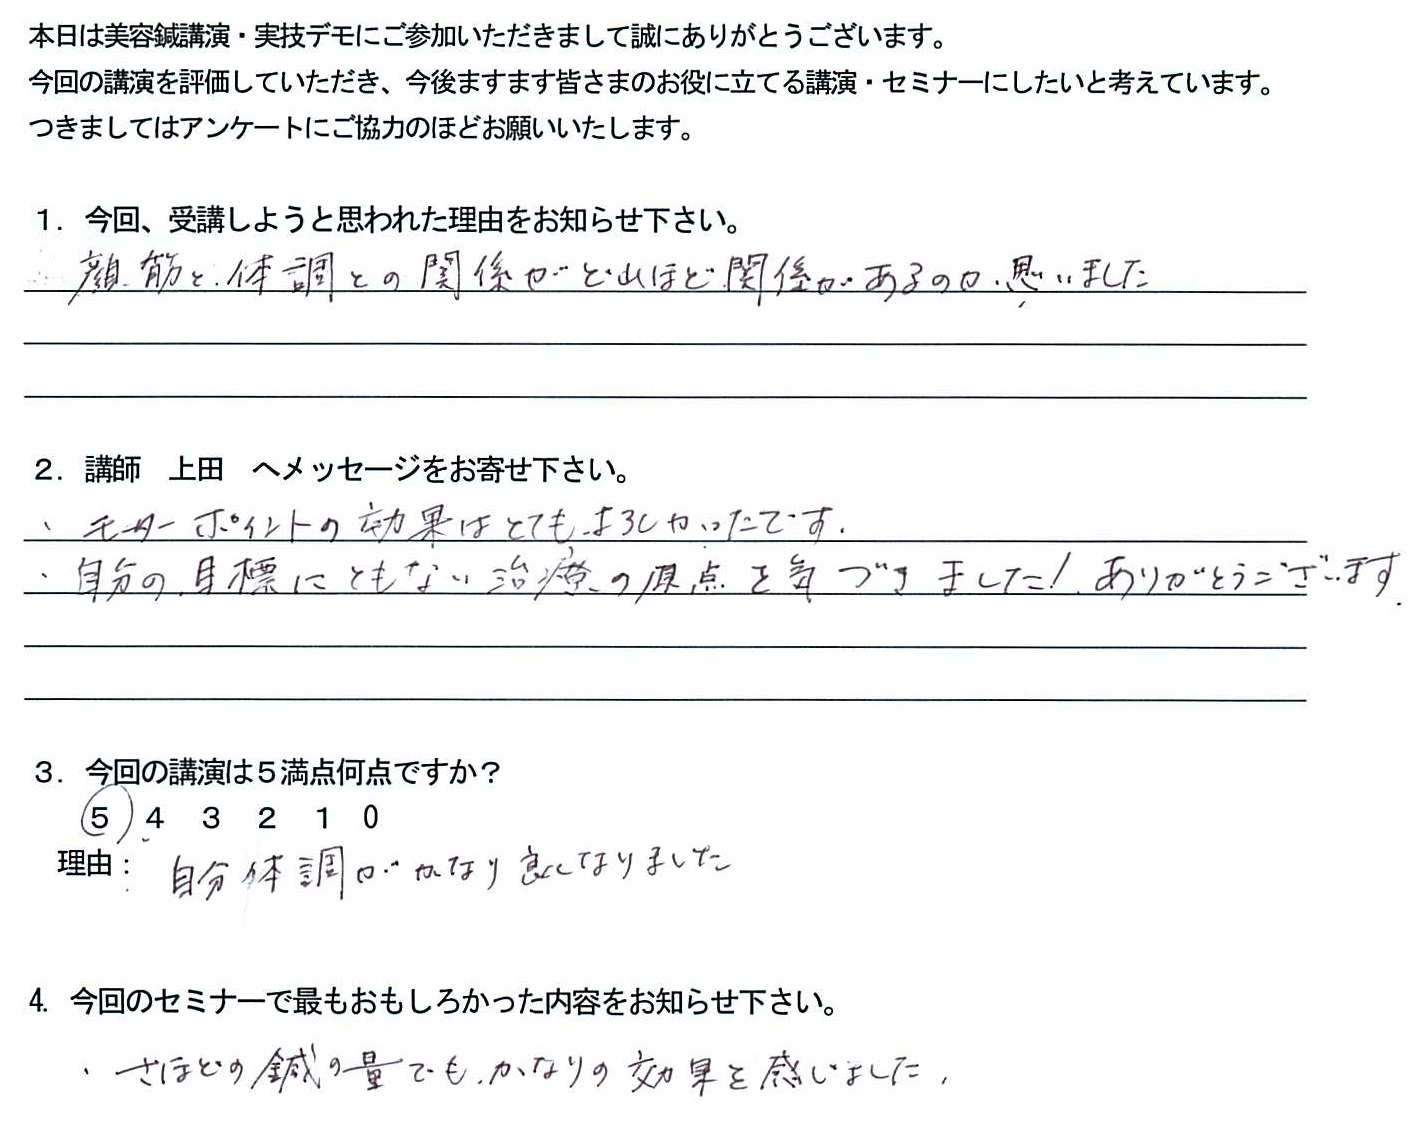 本日は美容鍼講演・実技デモにご参加いただきまして誠にありがとうございます。
今回の講演を評価していただき、今後ますます皆さまのお役に立てる講演・セミナーにしたいと考えています。
つきましてはアンケートにご協力のほどお願いいたします。
１．今回、受講しようと思われた理由をお知らせ下さい。
顔筋と体調との関係がどれほど関係があるのか思いました
２．講師　上田　へメッセージをお寄せ下さい。
・モーターポイントの効果はとてもよろしかったです。
・自分の目標にともない治療の原点を気づきました！ありがとうございます。
３．今回の講演は５満点何点ですか？
５　４　３　２　１　０
理由：自分体調がかなり良くなりました
4. 今回のセミナーで最もおもしろかった内容をお知らせ下さい。
・さほどの鍼の量でも、かなりの効果を感じました。